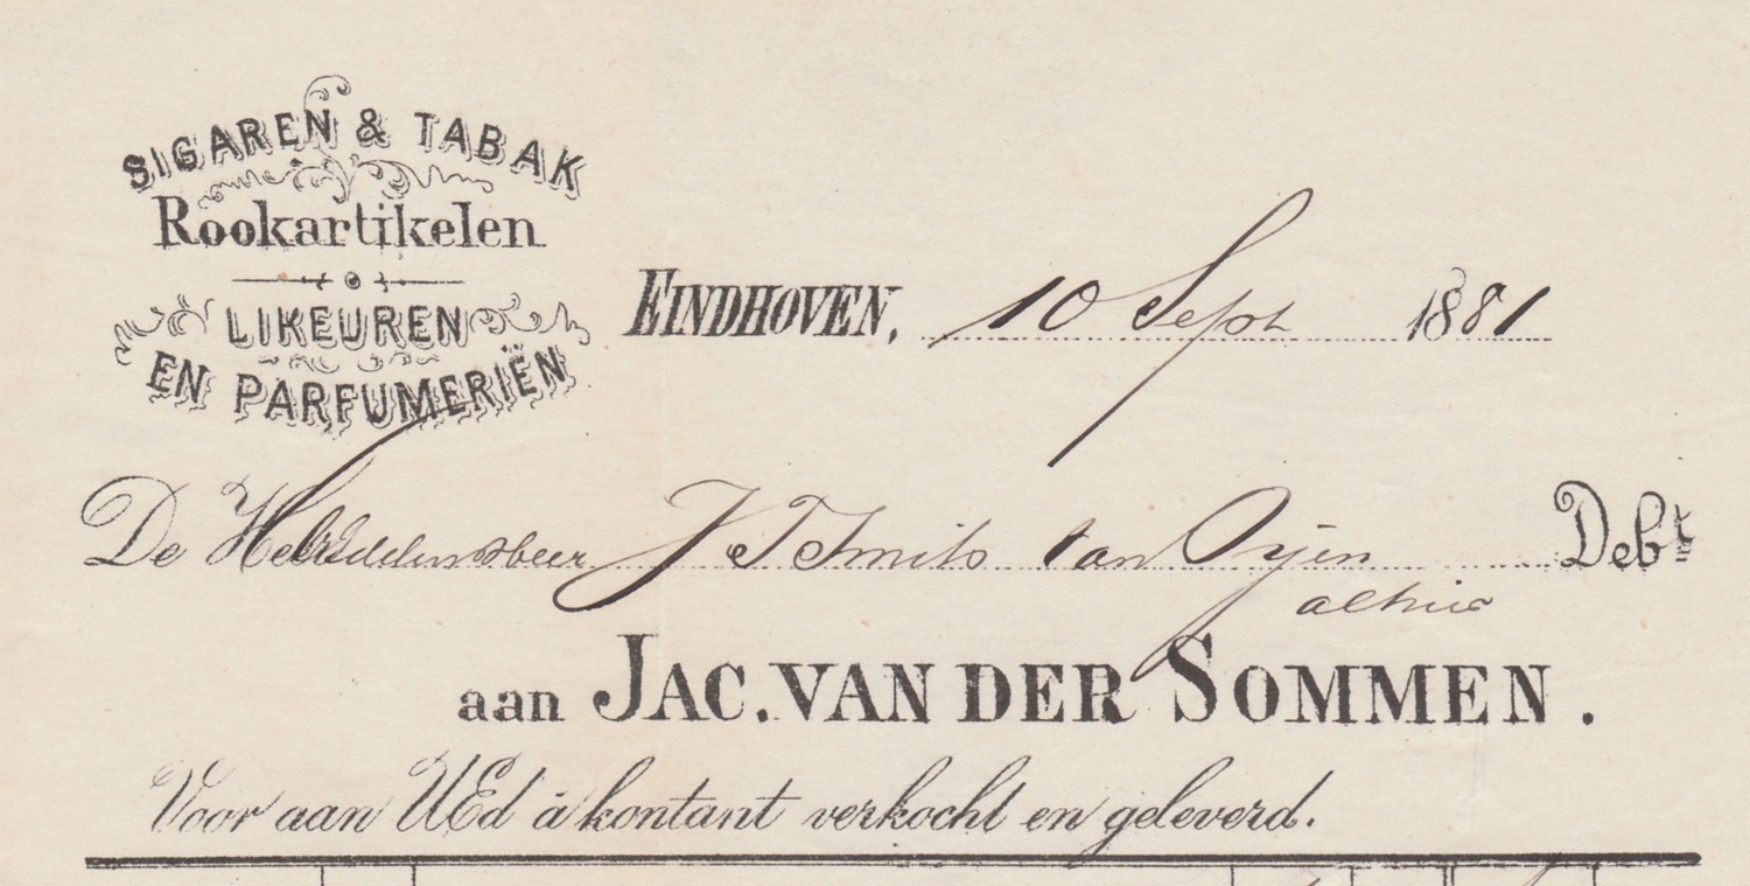 SIGAREN & TABAK
Rookartikelen
LIKEUREN
EN PARFUMERIËN
EINDHOVEN, 10 Sept 1881
De Heer J T Smits van Oyen Debt
alhier
aan JAC. VAN DER SOMMEN.
Voor aan UEd à kontant verkocht en geleverd.